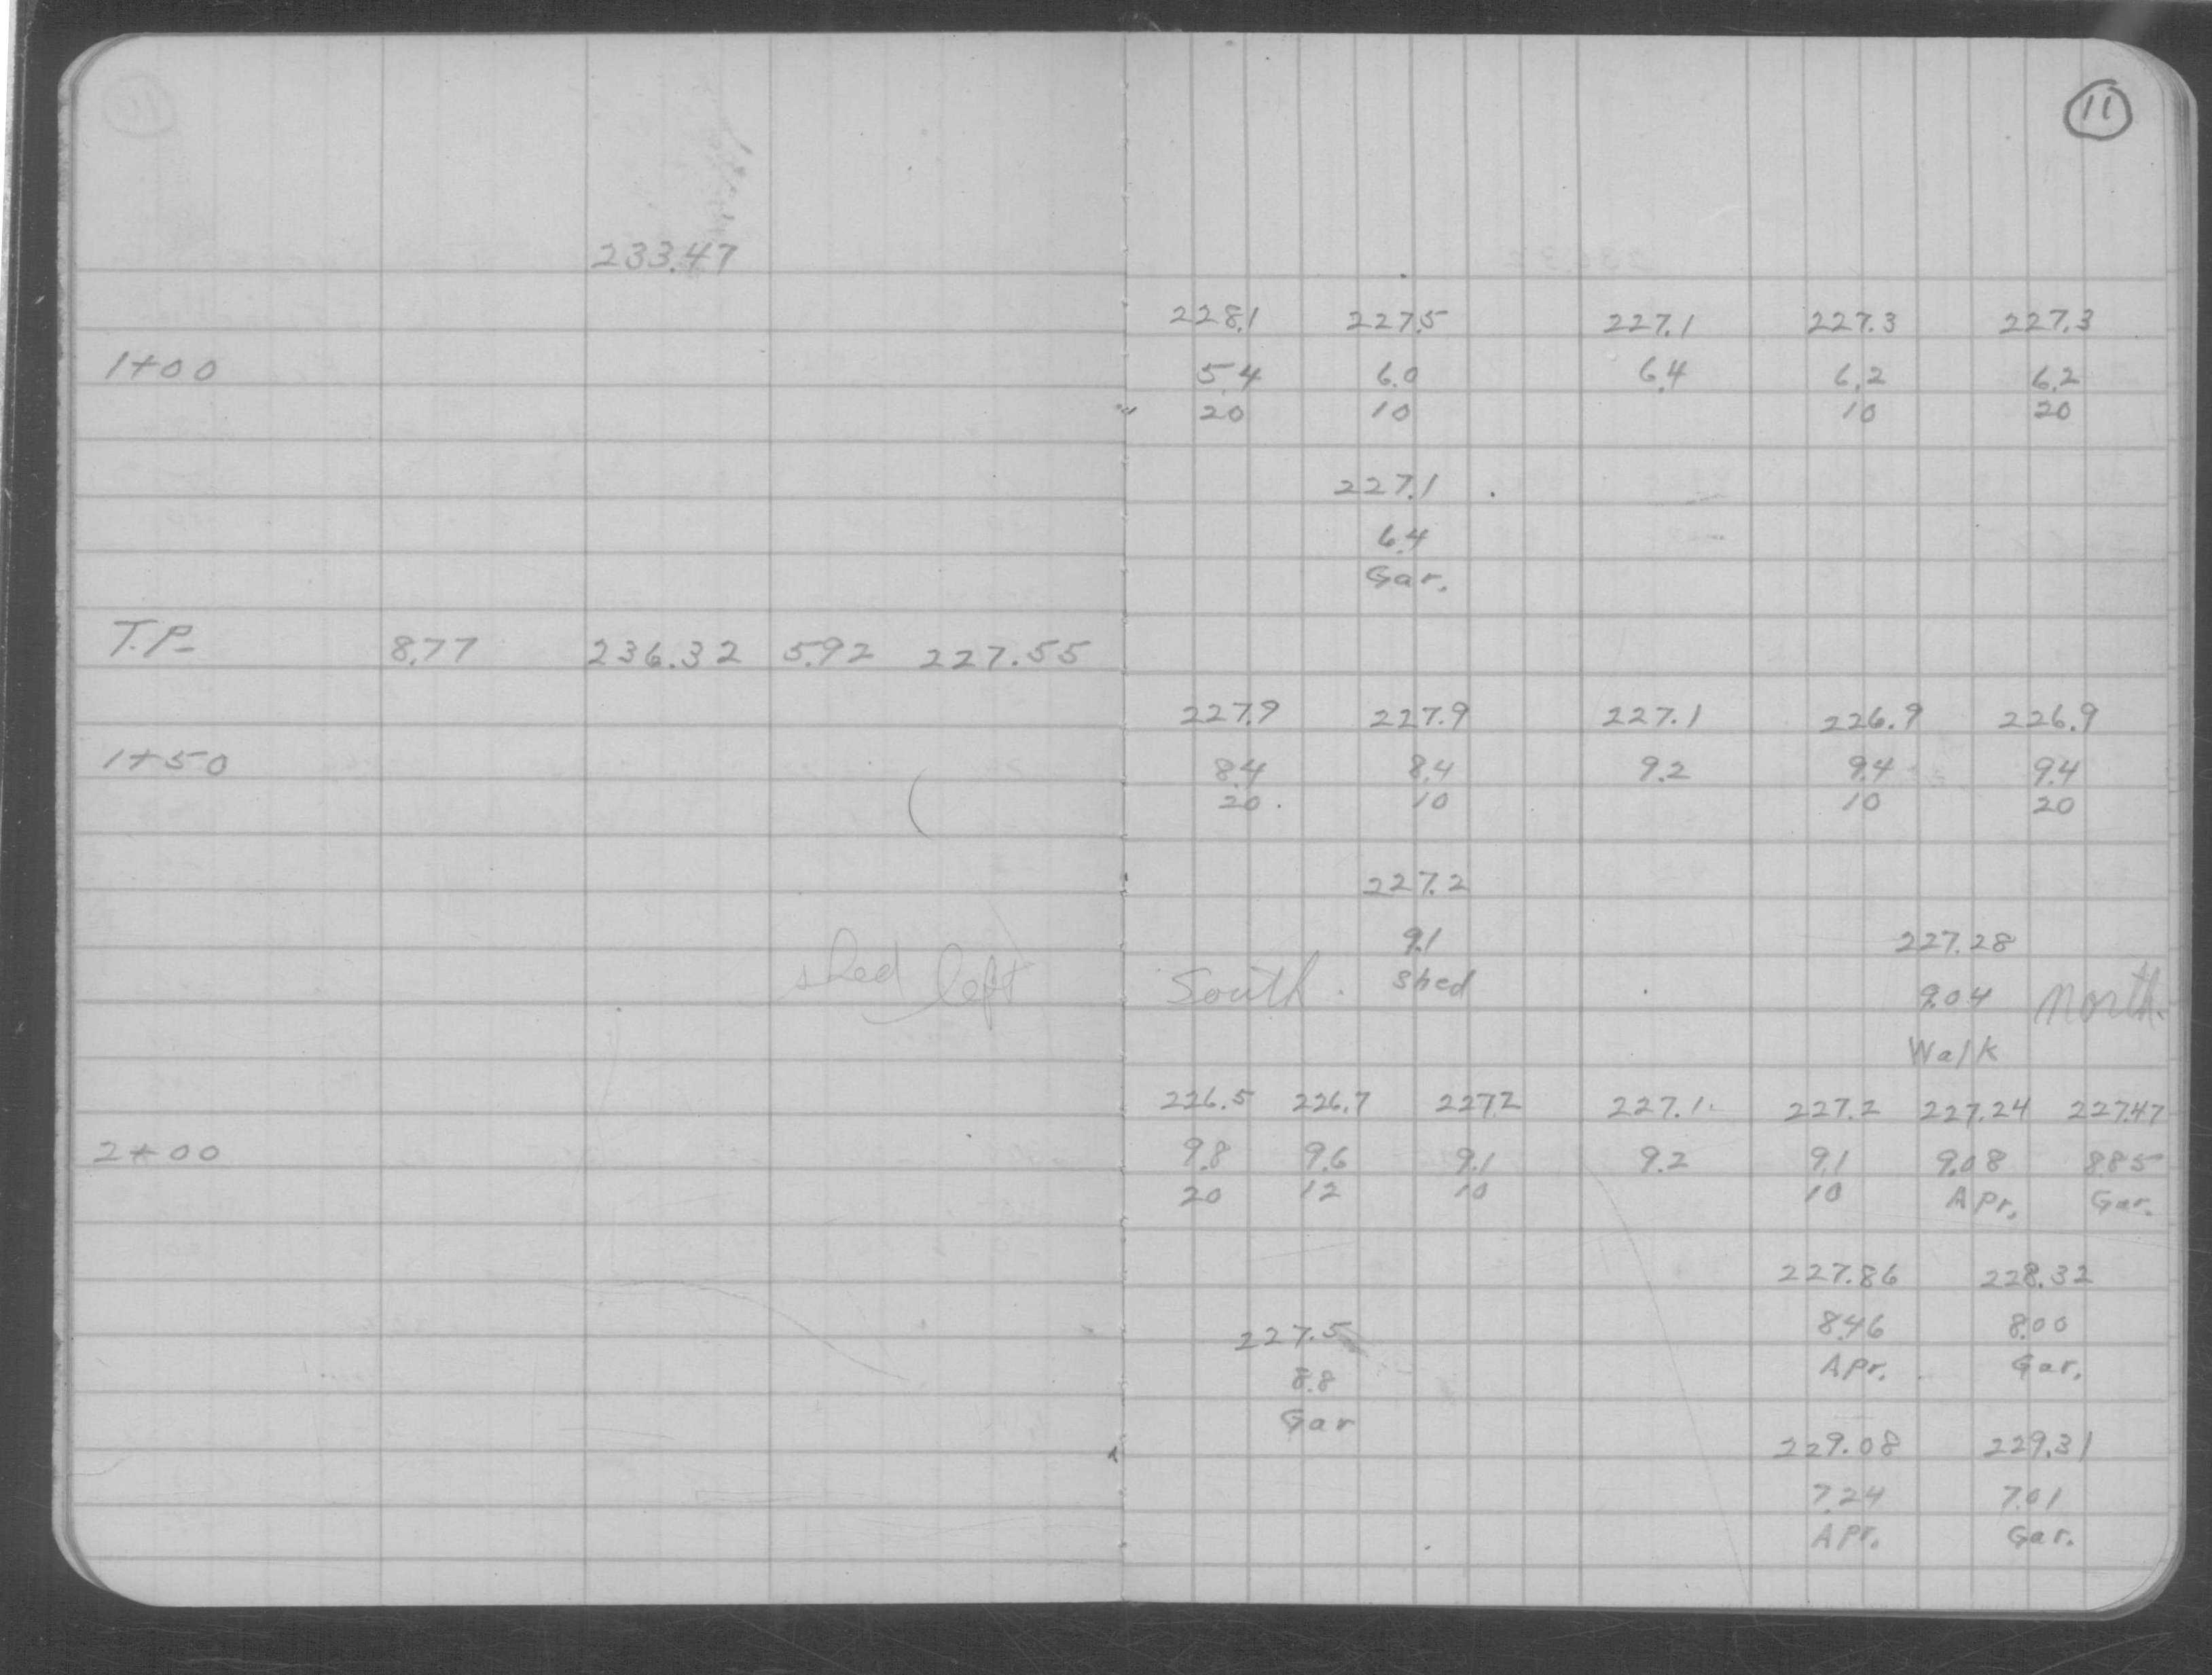 11
233.47
228.1 227.5 227.1 227.3 227.3
1+00 5.4 6.0 6.4 6.2 6.2
20 10 10 20
227.1
6.4
Gar.
T.P. 8.77 236.32 5.92 227.55
227.9 227.9 227.1 226.9 226.9
1+50 8.4 8.4 9.2 9.4 9.4
20 10 10 20
227.2
9.1 227.28
shed left South shed 9.04 North
Walk
226.5 226.7 227.2 227.1 227.2 227.24 227.47
2+00 9.8 9.6 9.1 9.2 9.1 9.08 8.85
20 12 10 10 Apr. Gar.
227.86 228.32
227.5 8.46 8.00
8.8 Apr. Gar.
Gar
229.08 229.31
7.24 7.01
Apr. Gar.